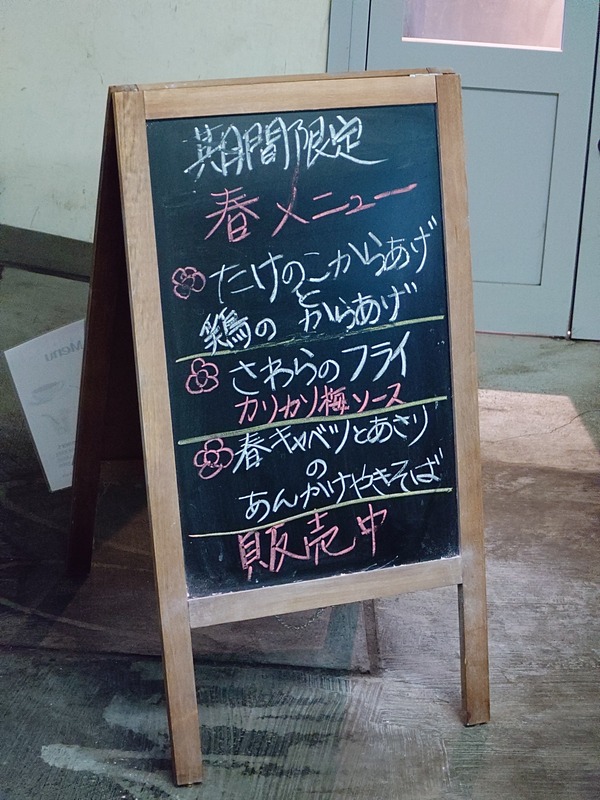 期間限定
春メニュー
たけのこからあげ
と
鶏の からあげ
さわらのフライ
カリカリ梅ソース
春キャベツとあさり
の
あんかけやきそば
販売中
Menu